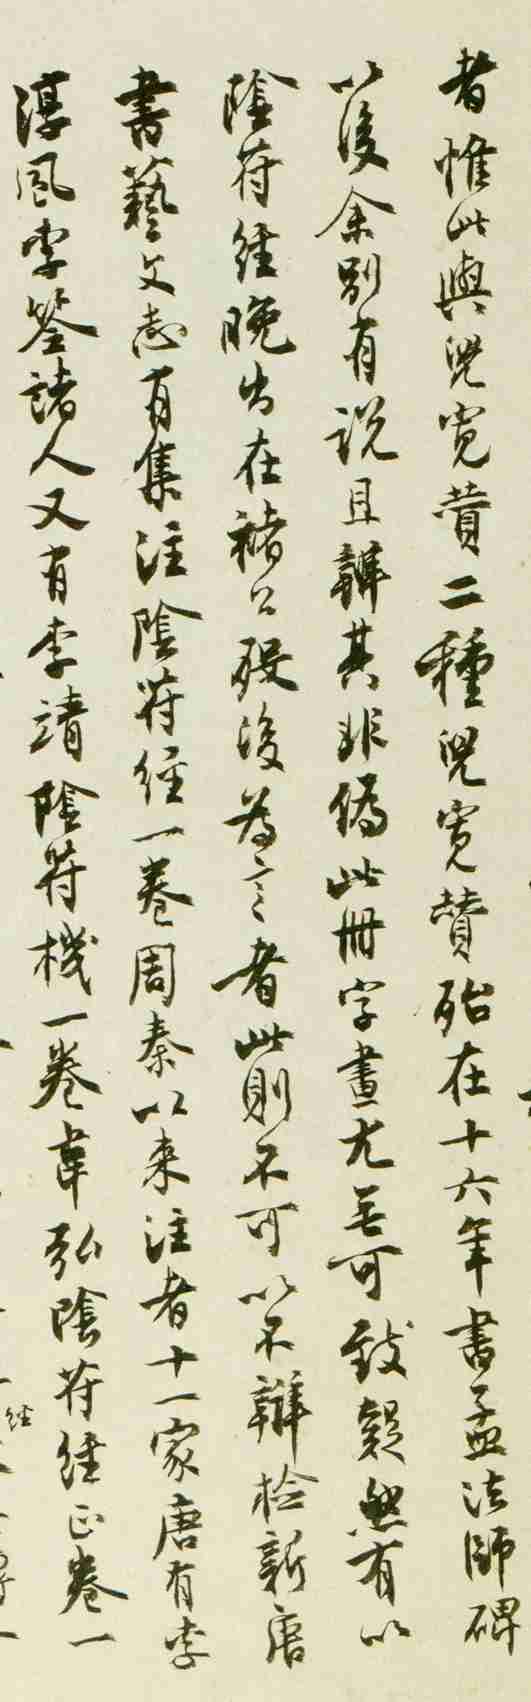 者惟此與兒寬贊二種兒寬贊殆在十六年書孟法師碑
以後余別有説且辯其非僞此冊字畫尤無可致疑然有以
陰符經晚出在褚公歿後為言者此則不可以不辯檢新唐
書藝文志有集注陰符經一卷周秦以来注者十一家唐有李
淳風李筌諸人又有李靖陰符機一卷韋弘陰符經正卷一
經